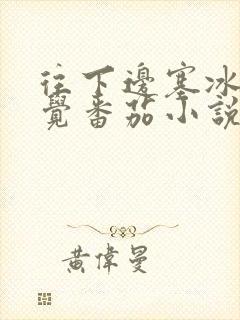 往下邊塞冰
覺番茄小說
黃偉曼